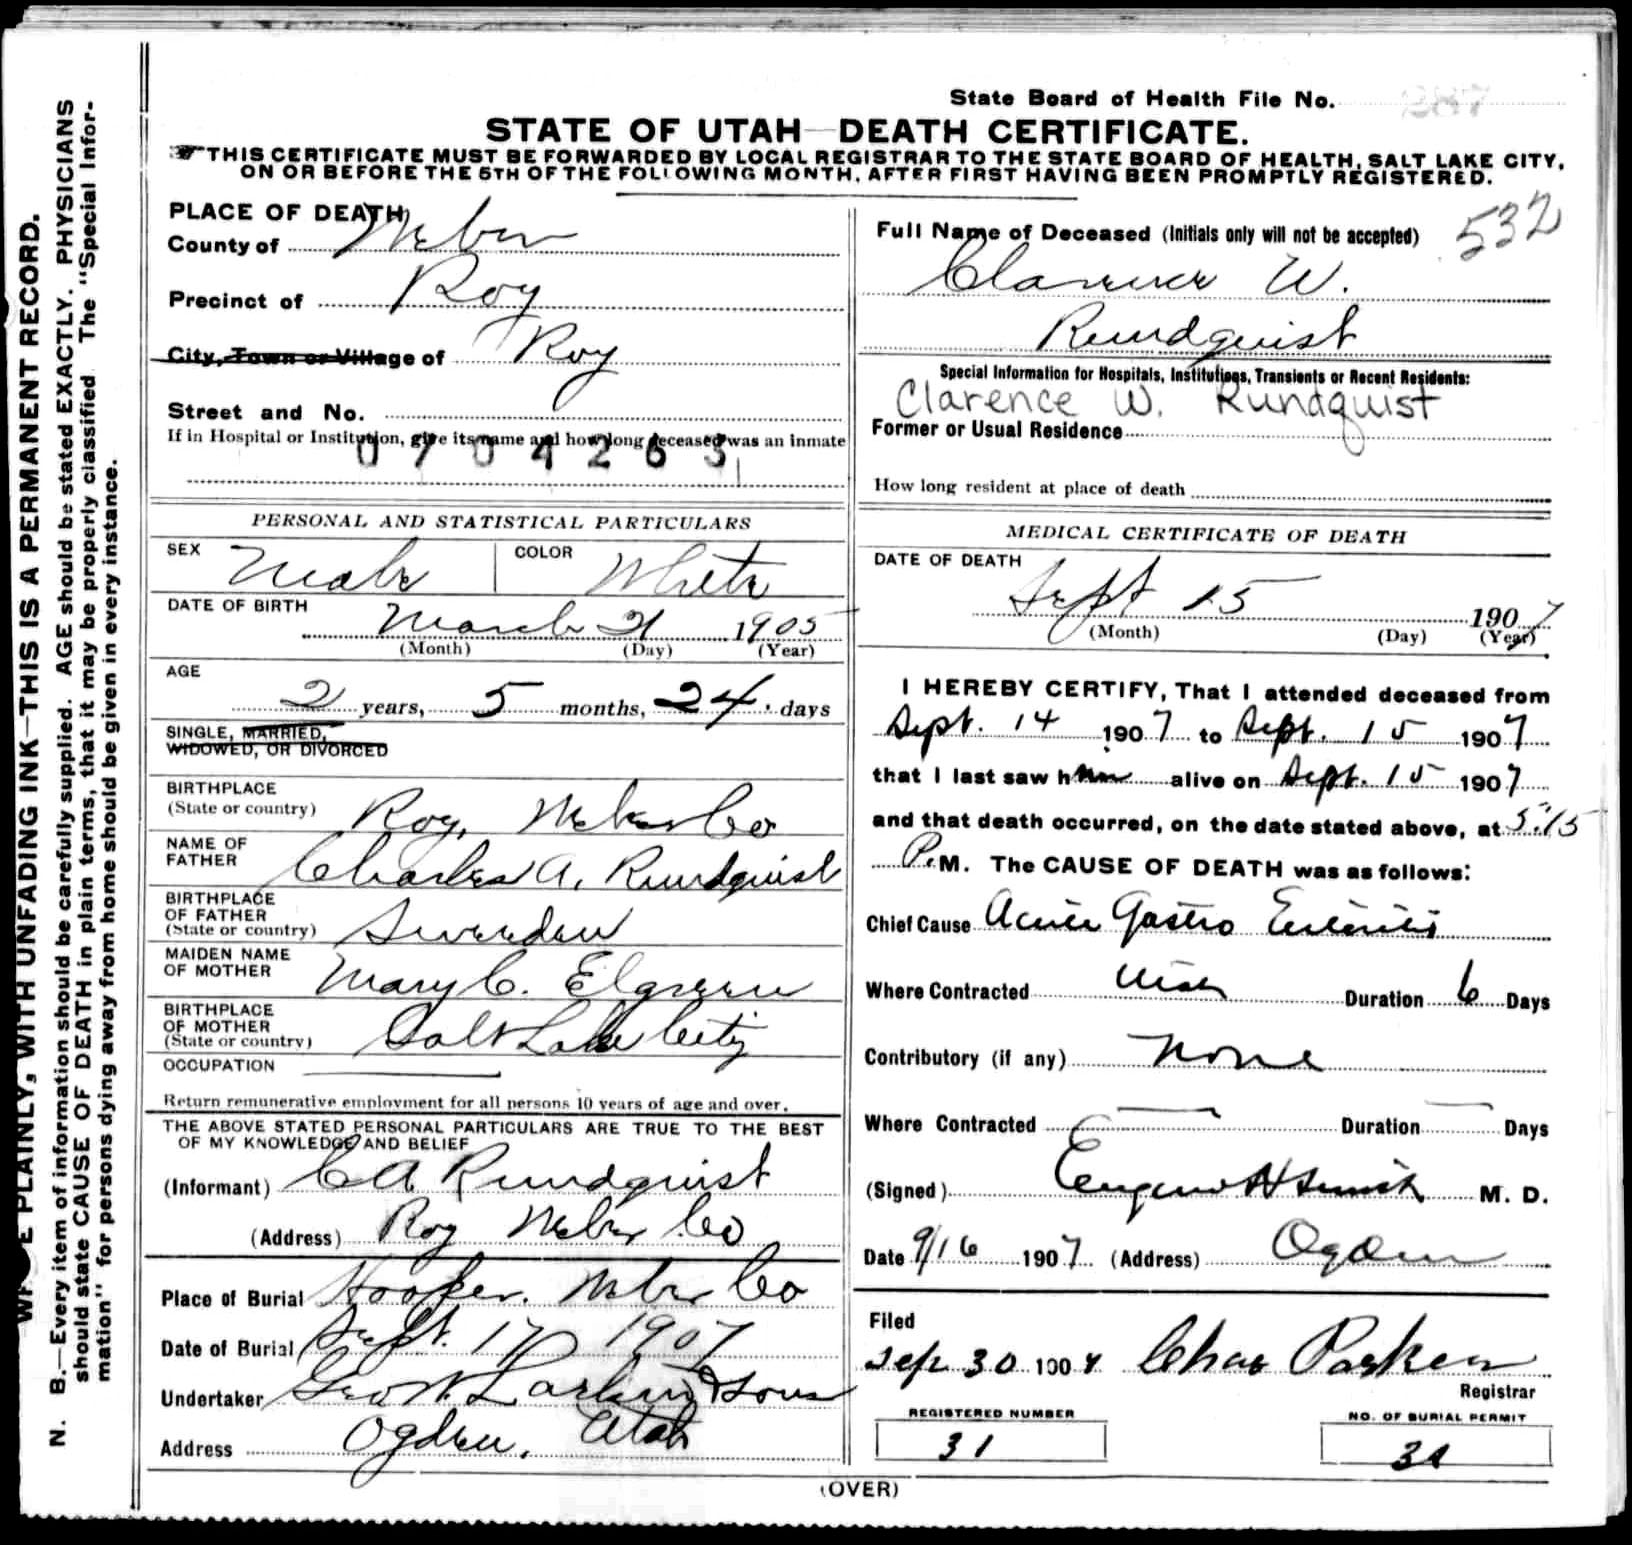 State Board of Health File No. 287
STATE OF UTAH—DEATH CERTIFICATE.
THIS CERTIFICATE MUST BE FORWARDED BY LOCAL REGISTRAR TO THE STATE BOARD OF HEALTH, SALT LAKE CITY,
ON OR BEFORE THE 5TH OF THE FOLLOWING MONTH, AFTER FIRST HAVING BEEN PROMPTLY REGISTERED.
PLAINLY, WITH UNFADING INK—THIS IS A PERMANENT RECORD.
N. B.—Every item of information should be carefully supplied. AGE should be stated EXACTLY. PHYSICIANS
should state CAUSE OF DEATH in plain terms, that it may be properly classified. The "Special Infor-
mation" for persons dying away from home should be given in every instance.
PLACE OF DEATH
County of Weber
Precinct of Roy
City, Town or Village of Roy
Street and No.
If in Hospital or Institution, give its name and how long deceased was an inmate
0704263
PERSONAL AND STATISTICAL PARTICULARS
SEX Male COLOR White
DATE OF BIRTH March 21 1905
(Month) (Day) (Year)
AGE
2 years, 5 months, 24 days
SINGLE, MARRIED,
WIDOWED, OR DIVORCED
BIRTHPLACE
(State or country) Roy, Weber Co
NAME OF
FATHER Charles A. Rundquist
BIRTHPLACE
OF FATHER
(State or country) Sweeden
MAIDEN NAME
OF MOTHER Mary C. Elgreen
BIRTHPLACE
OF MOTHER
(State or country) Salt Lake City
OCCUPATION
Return remunerative employment for all persons 10 years of age and over.
THE ABOVE STATED PERSONAL PARTICULARS ARE TRUE TO THE BEST
OF MY KNOWLEDGE AND BELIEF
(Informant) C A Rundquist
(Address) Roy Weber Co
Place of Burial Hooper. Weber Co
Date of Burial Sept. 17 1907
Undertaker Geo W. Larkin & Sons
Address Ogden, Utah
Full Name of Deceased (Initials only will not be accepted) 532
Clarence W.
Rundquist
Special Information for Hospitals, Institutions, Transients or Recent Residents:
Clarence W. Rundquist
Former or Usual Residence
How long resident at place of death
MEDICAL CERTIFICATE OF DEATH
DATE OF DEATH
Sept 15 1907
(Month) (Day) (Year)
I HEREBY CERTIFY, That I attended deceased from
Sept. 14 1907 to Sept. 15 1907
that I last saw him alive on Sept. 15 1907
and that death occurred, on the date stated above, at 5:15
P.M. The CAUSE OF DEATH was as follows:
Chief Cause Acute Gastro Enteritis
Where Contracted Utah Duration 6 Days
Contributory (if any) None
Where Contracted Duration Days
(Signed) Eugene H Smith M. D.
Date 9/16 1907 (Address) Ogden
Filed
Sep 30 1907 Chas Parker
Registrar
REGISTERED NUMBER
31
NO. OF BURIAL PERMIT
31
(OVER)